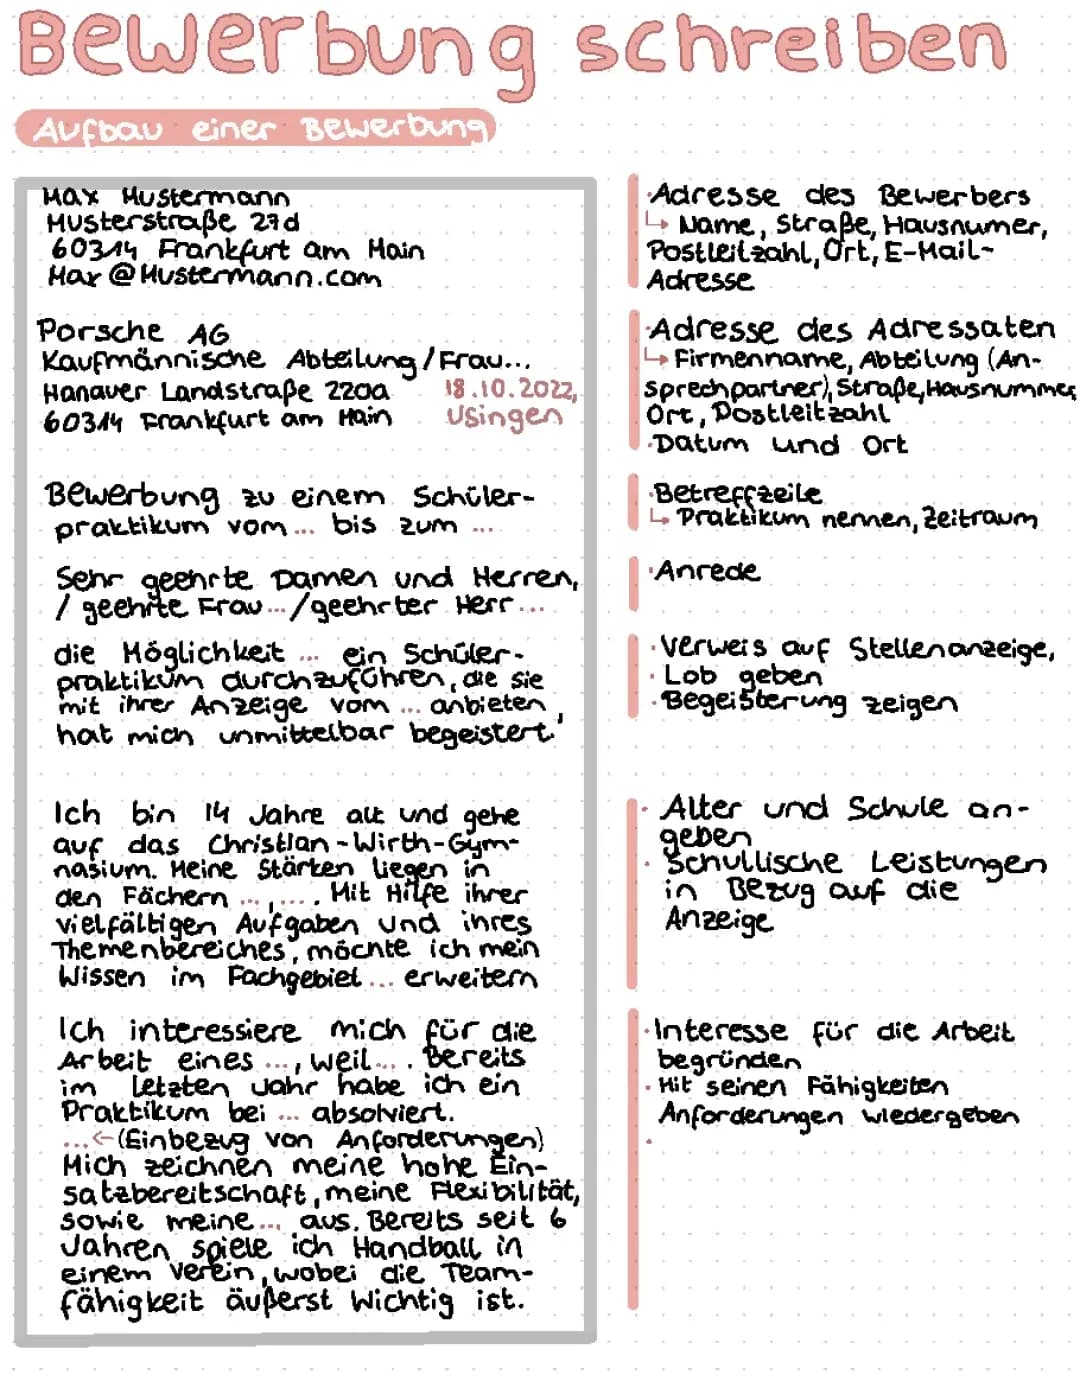 Bewerbung schreiben
Aufbau einer Bewerbung
Max Mustermann
Musterstraße 27d
60314 Frankfurt am Main
Max@Mustermann.com
Porsche AG
Kaufmännische Abteilung/Frau...
Hanauer Landstraße 220a
18.10.2022,
60314 Frankfurt am Main
Usingen
Bewerbung zu einem Schüler-
praktikum vom ... bis zum ...
Sehr geehrte Damen und Herren,
/ geehrte Frau .../geehrter Herr ...
die Möglichkeit ... ein Schüler-
praktikum durchzuführen, die sie
mit ihrer Anzeige vom ... anbieten,
hat mich unmittelbar begeistert.
Ich bin 14 Jahre alt und gehe
auf das Christian-Wirth-Gym-
nasium. Meine Stärken liegen in
den Fächern ..., .... Mit Hilfe ihrer
vielfältigen Aufgaben und ihres
Themenbereiches, möchte ich mein
Wissen im Fachgebiet ... erweitern
Ich interessiere mich für die
Arbeit eines ..., weil.... Bereits
im letzten Jahr habe ich ein
Praktikum bei ... absolviert.
...←(Einbezug von Anforderungen)
Mich zeichnen meine hohe Ein-
satzbereitschaft, meine Flexibilität,
sowie meine ... aus. Bereits seit 6
Jahren spiele ich Handball in
einem Verein, wobei die Team-
fähigkeit äußerst wichtig ist.
·Adresse des Bewerbers
↳ Name, Straße, Hausnumer,
Postleitzahl, Ort, E-Mail-
Adresse
·Adresse des Adressaten
↳ Firmenname, Abteilung (An-
sprechpartner), Straße, Hausnummer,
Ort, Postleitzahl
·Datum und Ort
·Betreffzeile
↳ Praktikum nennen, Zeitraum
·Anrede
·Verweis auf Stellenanzeige,
· Lob geben
·Begeisterung zeigen
· Alter und Schule an-
geben
· Schullische Leistungen
in Bezug auf die
Anzeige
·Interesse für die Arbeit
begründen
· Mit seinen Fähigkeiten
Anforderungen wiedergeben
·